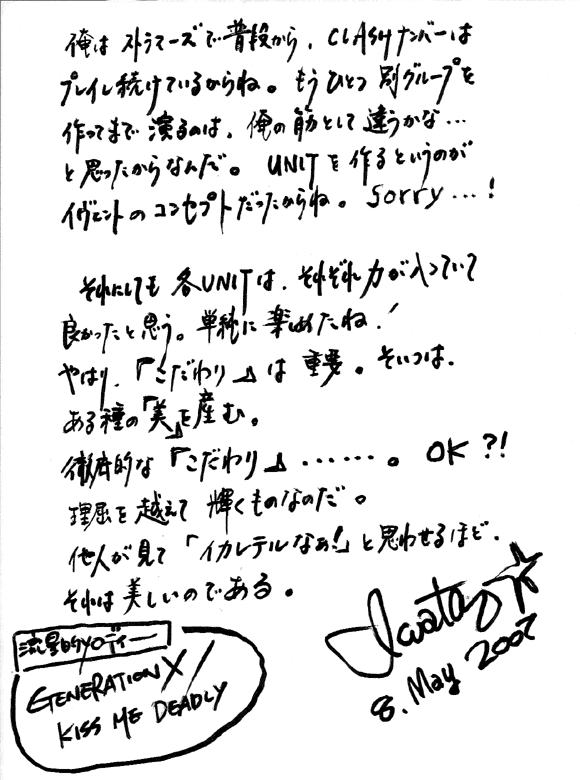 俺はストラマーズで普段から、CLASHナンバーは
プレイし続けているからね。もうひとつ別グループを
作ってまで演るのは、俺の筋として違うかな…
と思ったからなんだ。UNITを作るというのが
イヴェントのコンセプトだったからね。Sorry…!
それにしても各UNITは、それぞれ力が入っていて
良かったと思う。単純に楽しめたね!
やはり、『こだわり』は重要。そいつは、
ある種の「美」を産む。
徹底的な『こだわり』……。OK?!
理屈を越えて輝くものなのだ。
他人が見て「イカレテルなぁ!」と思わせるほど、
それは美しいのである。
流星的メロディー
GENERATION X/
KISS ME DEADLY
8. May 2007